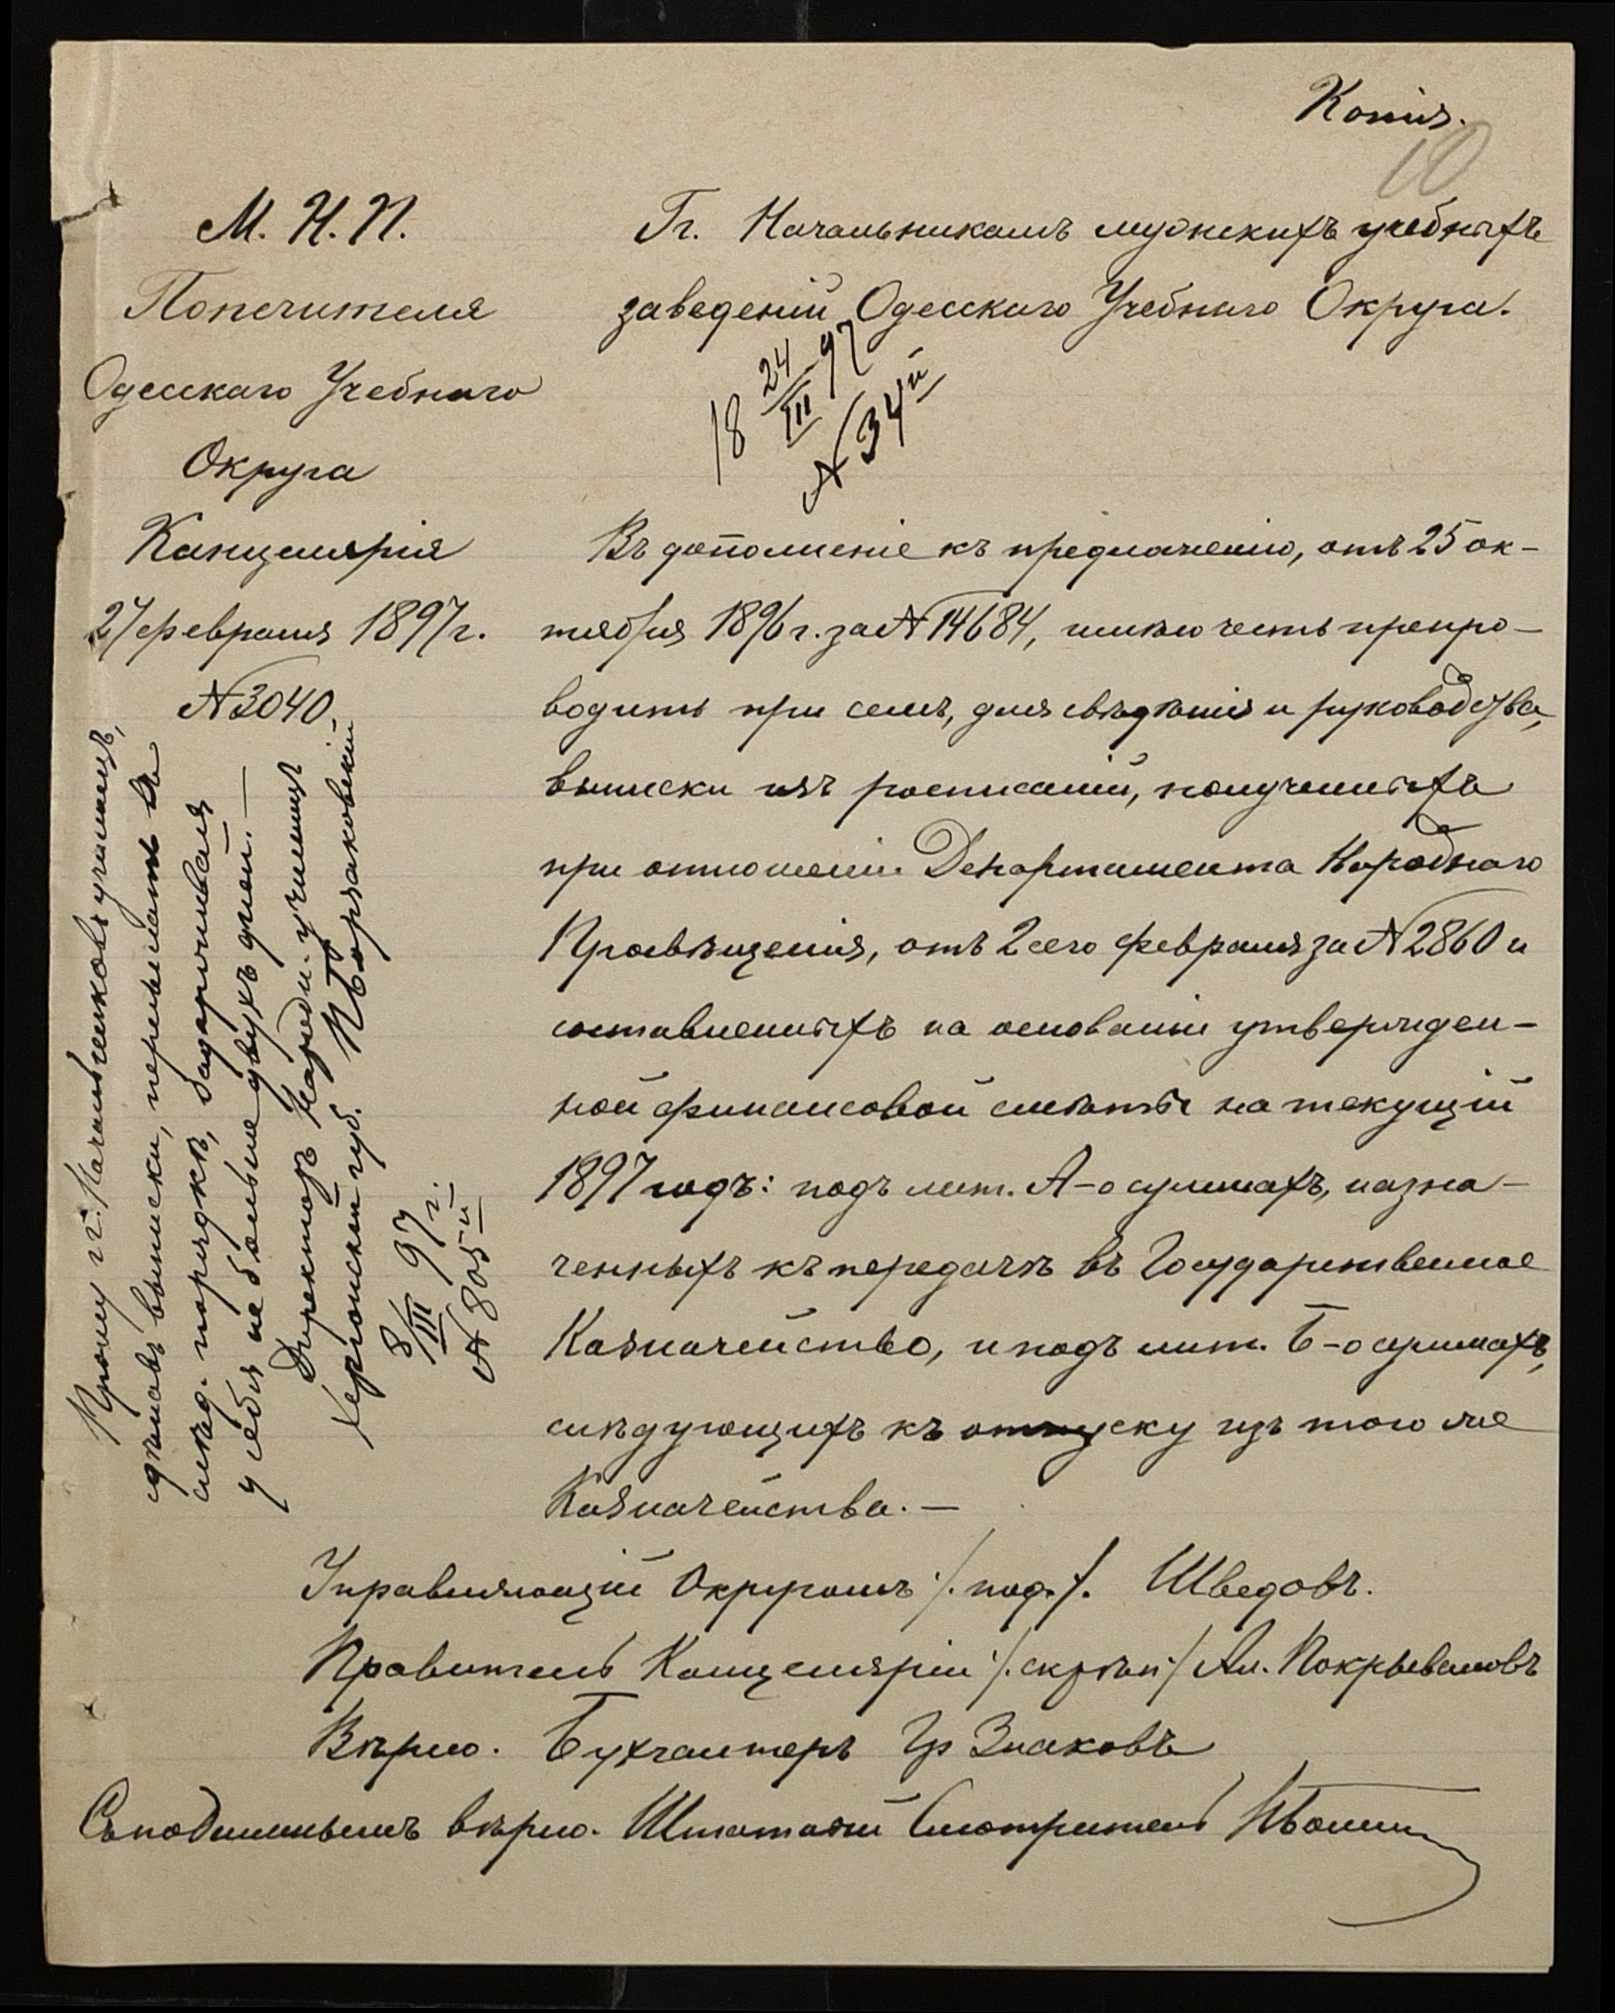 Копія.
10
М. Н. П.
Попечителя
Одесскаго Учебнаго
Округа
Канцелярія
27 февраля 1897 г.
№ 3040.
Гг. Начальникамъ мужскихъ учебныхъ
заведеній Одесскаго Учебнаго Округа.
18 24/III 97
№ 34й
Въ дополненіе къ предложенію, отъ 25 ок-
тября 1896 г. за № 14684, имѣю честь препро-
водить при семъ, для свѣдѣнія и руководства,
выписки изъ росписаній, полученныхъ
при отношеніи Департамента Народнаго
Просвѣщенія, отъ 2 сего февраля за № 2860 и
составленныхъ на основаніи утвержден-
ной финансовой смѣты на текущій
1897 годъ: подъ лит. А - о суммахъ, назна-
ченныхъ къ передачѣ въ Государственное
Казначейство, и подъ лит. Б - о суммахъ,
слѣдующихъ къ отпуску изъ того же
Казначейства. —
Управляющій Округомъ /. под. /. Шведовъ.
Правитель Канцеляріи /. скрѣп. / Ал. Покрываловъ
Вѣрно. Бухгалтеръ Гр Знаковъ
Съ подлиннымъ вѣрно. Штатный Смотритель
Прошу гг. Начальниковъ училищъ,
сдѣлавъ выписки, пересылать въ
слѣд. порядкѣ, задерживая
у себя не больше двухъ дней. —
Директоръ Народн. училищъ
Херсонской губ.
8/III 97 г.
№ 805й